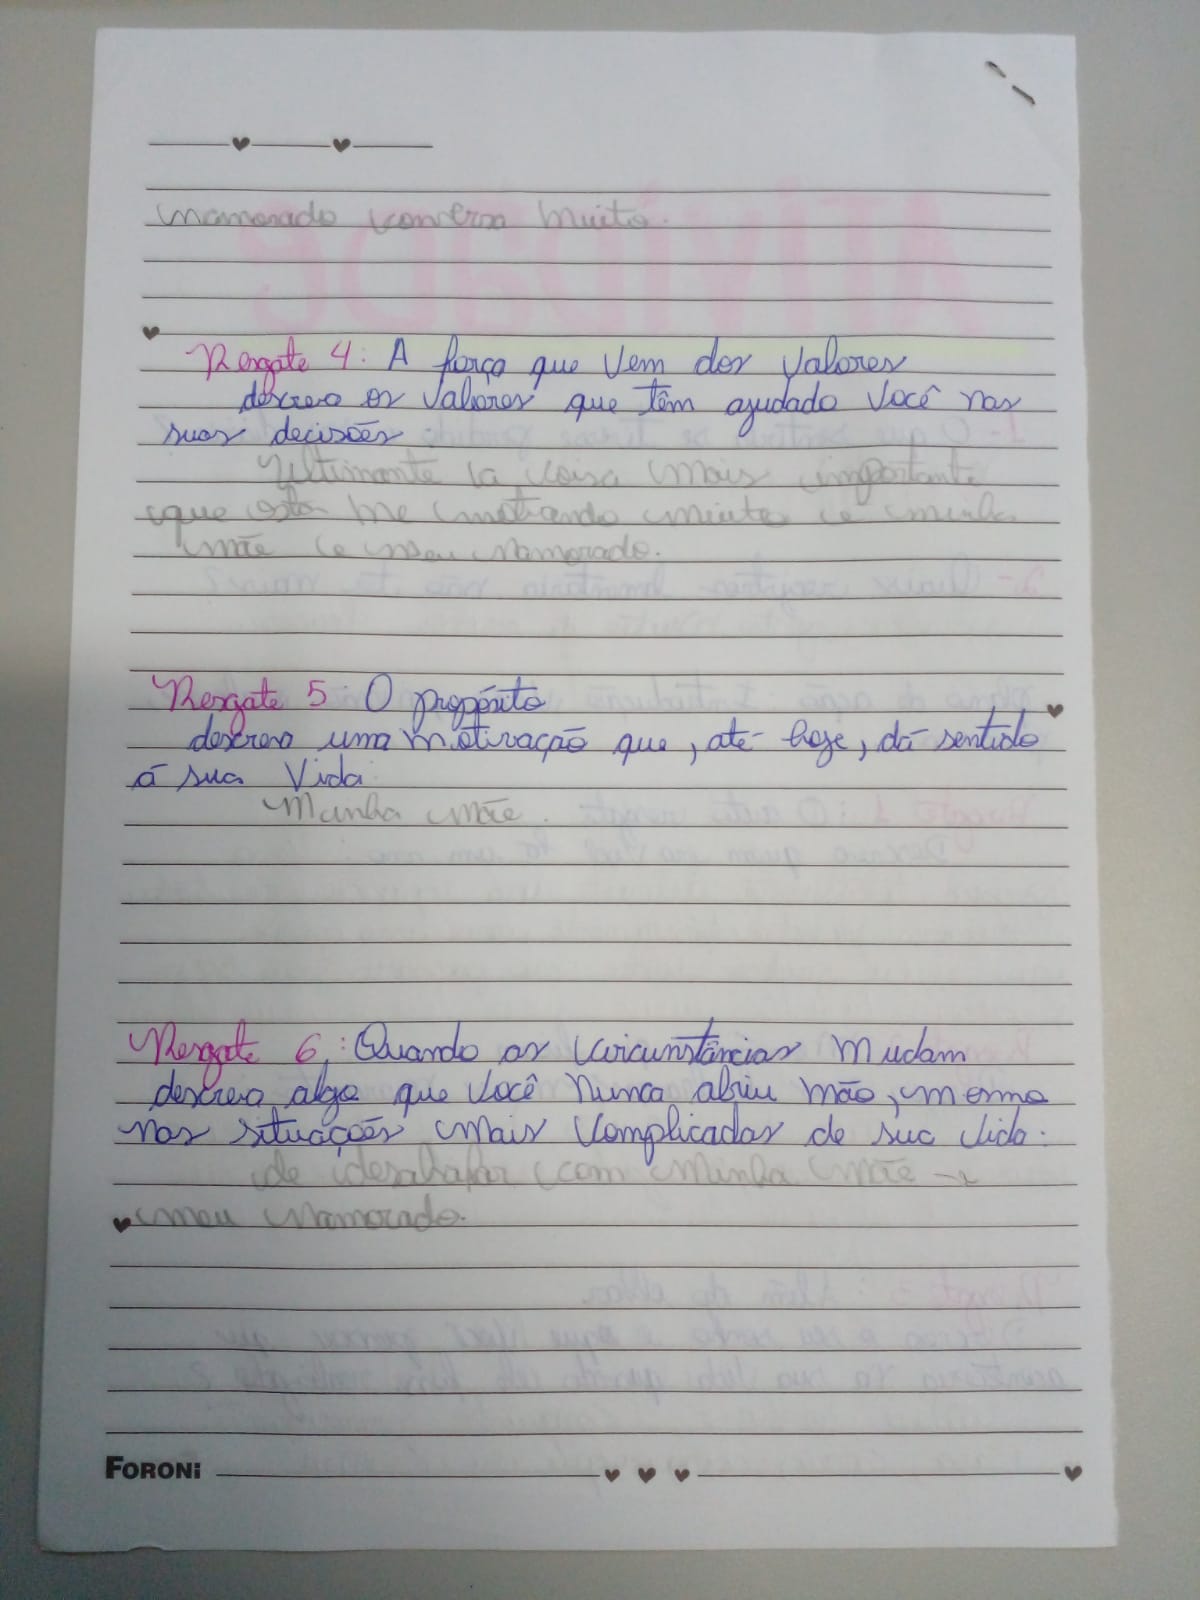 namorado conversa muito.
Resgate 4: A força que vem dos valores
descreva os valores que têm ajudado você nas
suas decisões:
Ultimante a coisa mais importante
que está me motivando muito é minha
mãe e meu namorado.
Resgate 5: O propósito
descreva uma motivação que, até hoje, dá sentido
á sua vida
Minha mãe.
Resgate 6: Quando as circunstâncias mudam
descreva algo que você nunca abriu mão, mesmo
nas situações mais complicadas de sua vida:
de desabafar com minha mãe e
meu namorado.
FORONI